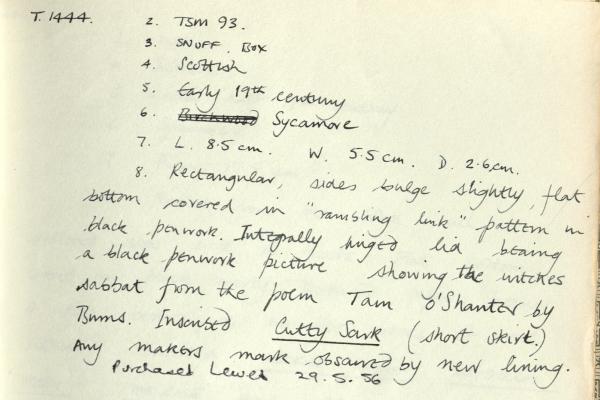 T. 1444.
2. TSM 93.
3. SNUFF BOX
4. Scottish
5. Early 19th century
6. Birchwood Sycamore
7. L. 8.5 cm. W. 5.5 cm. D. 2.6 cm.
8. Rectangular, sides bulge slightly, flat
bottom covered in "ramshing link" pattern in
black penwork. Integrally hinged lid bearing
a black penwork picture showing the witches
sabbat from the poem Tam O'Shanter by
Burns. Inscribed Cutty Sark (short skirt.)
Any makers mark obscured by new lining.
Purchased Lewes 29.5.56